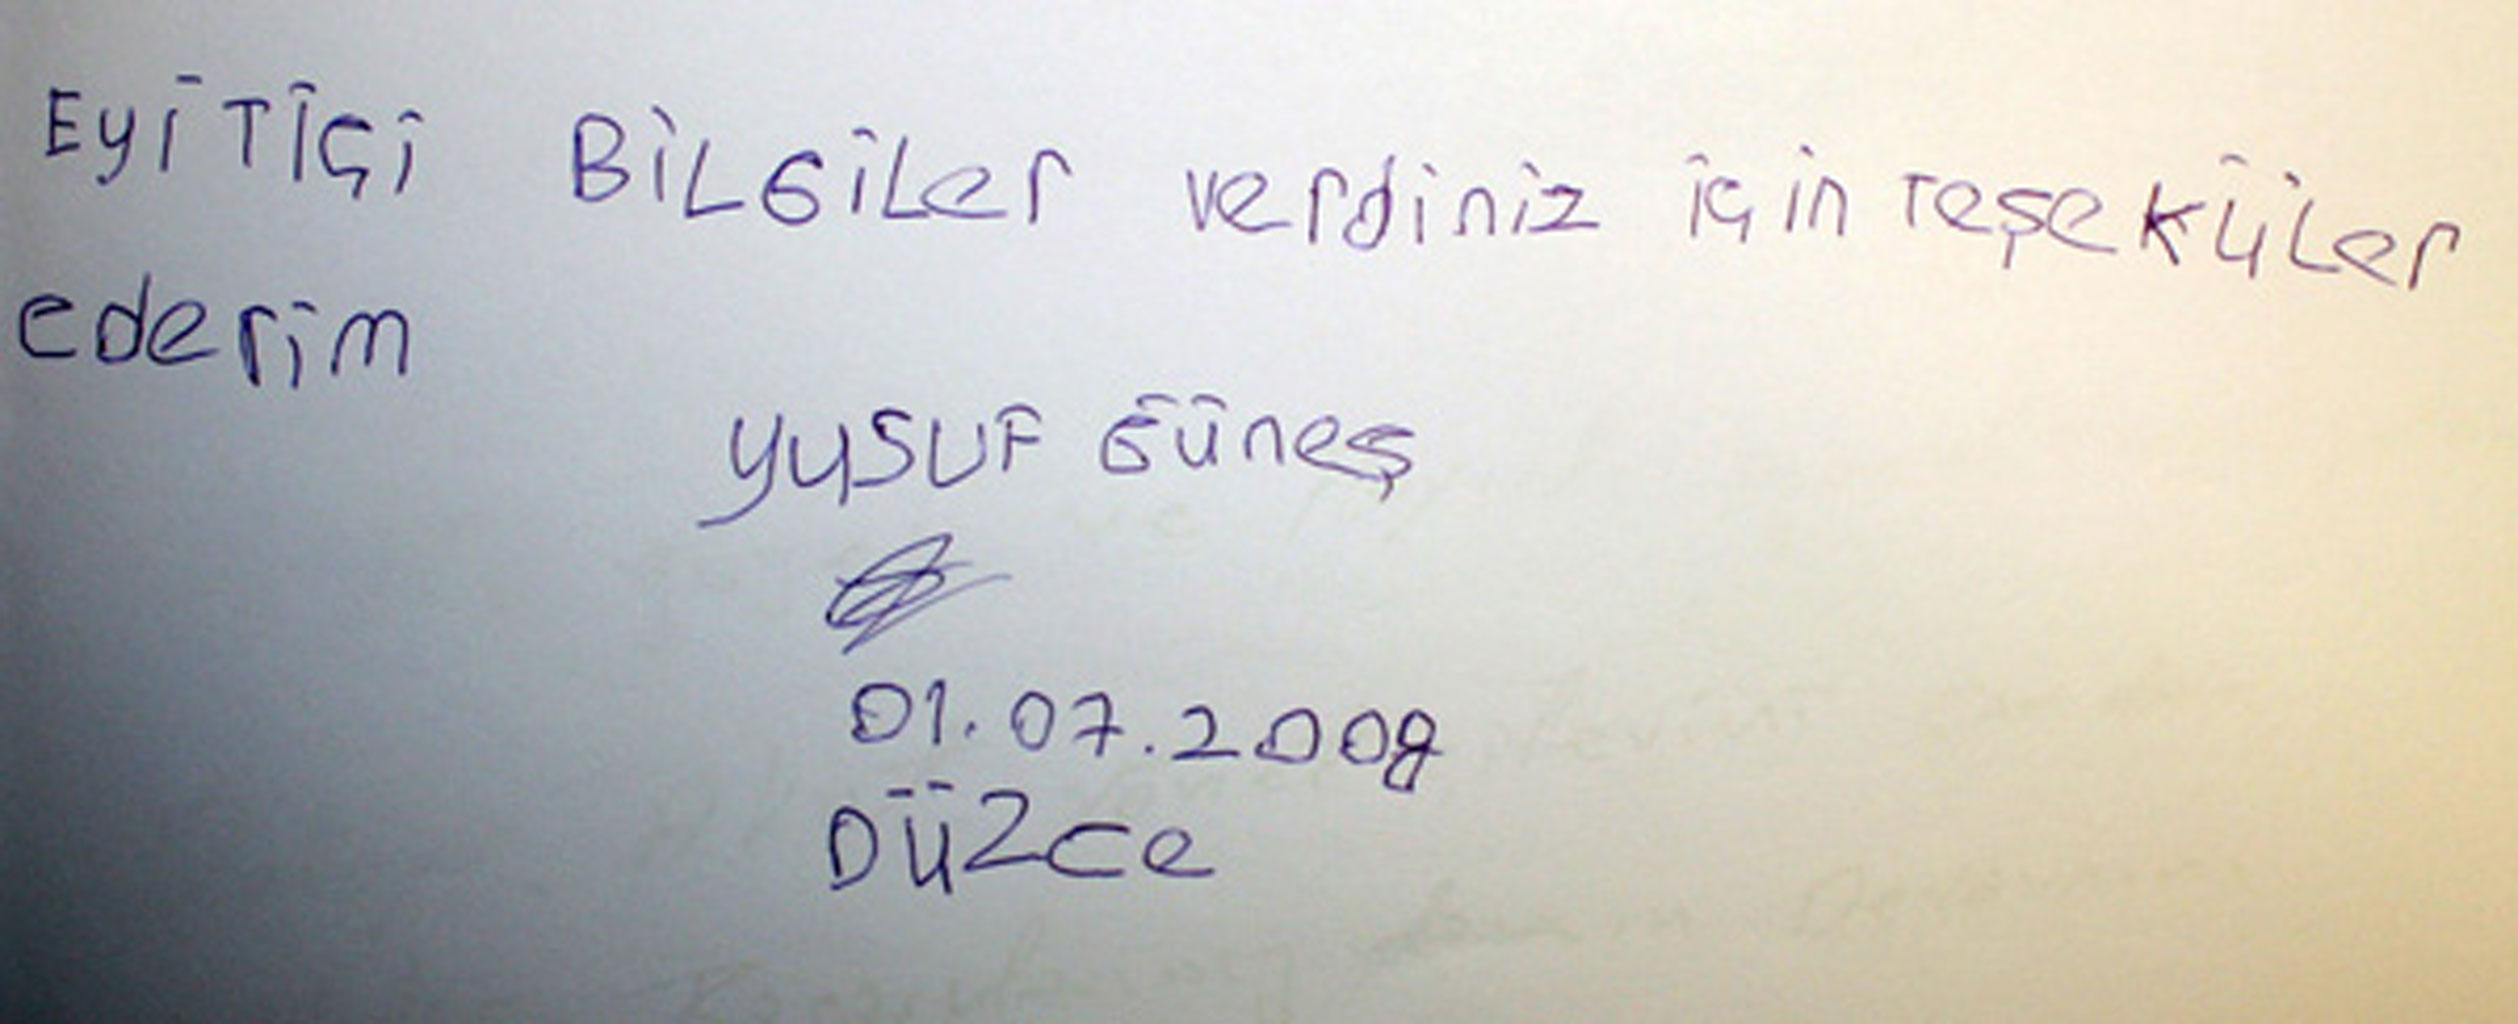 Eyitiçi Bilgiler verdiniz için teşeküler
ederim
Yusuf Güneş
01.07.2008
Düzce